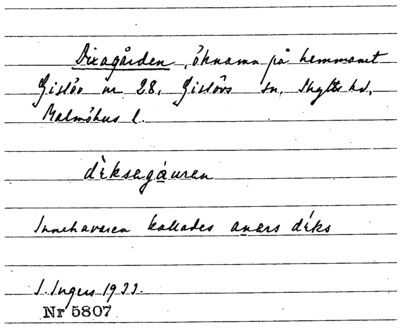 Dixagården, öknamn på hemmanet
Gislöv nr 28, Gislövs sn, Skytts hd,
Malmöhus l.
dìksagåuren
Innehavaren kallades anars díks
I. Ingers 1933.
Nr 5807